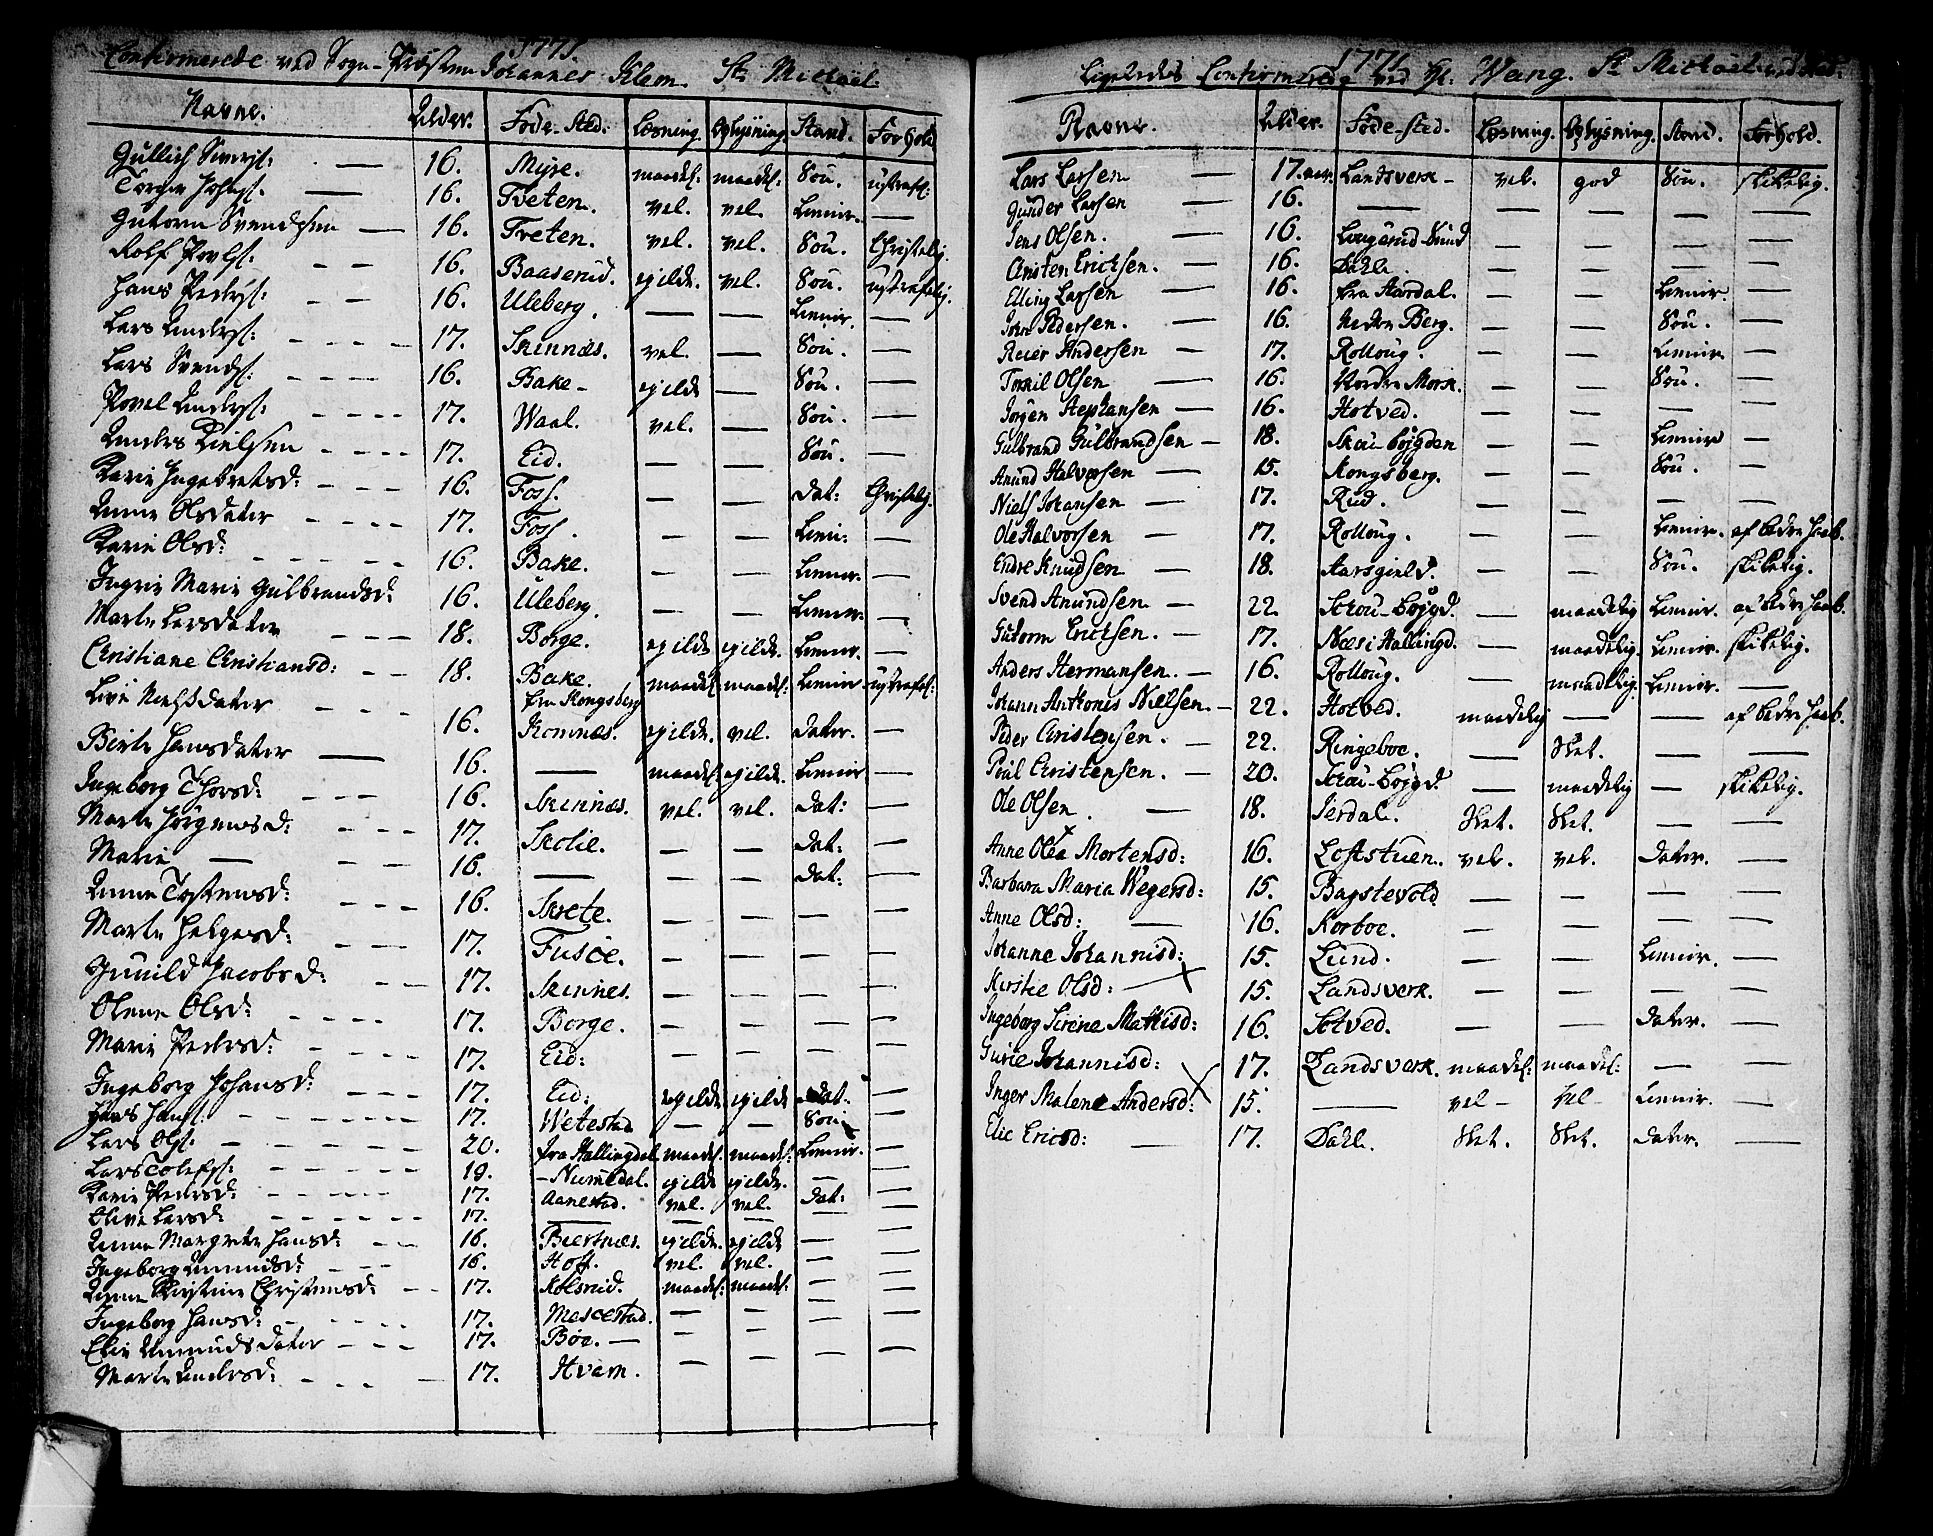 1771.
Confirmerede ved Sogne-Præsten Johannes Klem. St Michael.
Navne. Alder. Føde-Sted. Læsning. Oplysning. Stand. Forhold
Gullich Sivers: — 16. Myre. maadel: maadel: Søn. ustrafl:
Torger Johns: — 16. Tveten. vel. vel. Leenir. —
Gutorm Svendsen — 16. Tveten. vel. vel. Søn. Christelig.
Rolf Povels: - - 16. Baaserud. gilde. vel. Søn. ustrafelig.
Hans Peders: - - 16. Uleberg. — — Leenir. —
Lars Anders: - - - - 17. Skinnæs. vel. — Søn. —
Lars Svends: - - - 16. Bake - gilde — Søn. —
Povel Anders: - - - - 17. Waal. vel. — Søn. —
Anders Nielsen - - - - 17. Eid. — — Søn. —
Karie Ingebretsd: - - - 16. Foss. — — dat: Christelig.
Anne Olsdater - - - - 17. Foss. — — Leeni: —
Karie Olsd: - - - - - 16. Bake. — — Leenir. —
Ingrie Marie Gulbrandsd: 16. Uleberg. — — Leenir. —
Marte Larsdater - - - 18. Borge. gilde gilde. Leenir. —
Christiane Christiansd: - - 18. Bake. maadel: maadel: Leenir ustrafel:
Live Nielsdater - - - 16. fra Kongsberg Komnæs. gilde. vel. dater. —
Birte Hansdater — 16. — maadel: gilde. Leenir —
Ingeborg Thorsd: - - - 16. Skinnæs. vel. vel. dat: —
Marte Jørgensd: - - - 17. Skolie. — — dat: —
Marie — - - - 16. — — — dat: —
Anne Tostensd: - - - 16. Skrete. — — — —
Marte Helgesd: - - - 17. Fusøe. — — — —
Gunild Jacobsd: - - - 17. Skinnes. — — — —
Olene Olsd: - - - - 17. Borge. — — — —
Marie Pedersd: - - - - 17. Eid: — — — —
Ingeborg Johansd: - - - 17. Eid: gilde gilde dat: —
Hans Hans: - - - - - 17. Wetestad — — Søn —
Lars Ols: - - - - - 20. fra Hallingdal maadel: maadel: Leenir. —
Lars Tolefs: - - - - - 19. - Numedal. gilde gilde. — —
Karie Pedersd: - - - - - 17. Aanestad. vel. vel. dat: —
Olive Larsd: - - - - - - 17. — — — —
Anne Margrete Hansd: - - 16. Biertnæs. gilde. gilde — —
Ingeborg Amundsd: - - - 16. Hoff. vel. vel. — —
Anne Kirstine Christensd: - - 17. Kolsrud. maadel: maadel: — —
Ingeborg Hansd: - - - - - 17. Mascestad. — — — —
Elie Amundsdater - - - 17. Bøe. — — — — —
Marte Andersd: - - - - 17. Hvam. — — — —
1771.
Ligeledes Confirmerede ved Hr. Wang. St Michael
Navne. Alder. Føde-sted. Læsning. Oplysning. Stand. Forhold.
Lars Larsen — 17. aar. Landsverk - vel. god Søn. skikelig.
Gunder Larsen — 16. — — — — —
Jens Olsen. — 16. Lougerud Sund — — — —
Christen Erichsen. — 16. Dahle. — — — —
Elling Larsen — 16. fra Aardal. — — Leenir. —
John Pedersen. — 16. Nedre Berg. — — Søn. —
Reier Andersen — 17. Rolloug. — — Leenir —
Torkil Olsen — 16. Nordre Mork. — — Søn. —
Jørgen Stephansen — 16. Hotved. — — — —
Gulbrand Gulbrandsen - 18. Skou-bøygden — — Leenir —
Anund Halvorsen — 15. Kongsberg. — — Søn. —
Niels Johansen — 17. Rud. — — — —
Ole Halvorsen — 17. Rolloug. — — Leenir. af bedre Haab.
Endre Knudsen — 18. Aarsgield. — — Søn. skikelig.
Svend Anundsen — 22. Skou-Bøygd. — maadelig Leenir. af bedre Haab.
Gutorm Erichsen. — 17. Næs i Hallingd. — maadelig. Leenir. skikelig.
Anders Hermansen. — 16. Rolloug. — maadelig. Leenir. —
Johann Anthonis Nielsen. - 22. Hotved. maadelig — — af bedre Haab.
Peder Christensen. — 22. Ringeboe. — Slet. — —
Poul Christensen. — 20. Skou-Bøygd. — maadelig — skikelig.
Ole Olsen. — 18. Jerdal. Slet. Slet. — —
Anne Olea Mortensd: 16. Loftstuen. vel. vel. dater. —
Barbara Maria Wegersd: 15. Bagstevold — — — —
Anne Olsd: — 16. Korboe. — — — —
Johanne Johannisd: 15. Lund. — — Leenir. —
Kirstie Olsd: — x 15. Landsverk. — — — —
Ingeborg Serina Mathisd: 16. Sotved. — — dater. —
Gurie Johannisd: 17. Landsverk. maadel: maadel: — —
Inger Malene Andersd: x 15. — vel - vel - Leenir. —
Elie Ericsd: — 17. Dahle. Slet. Slet. dater. —